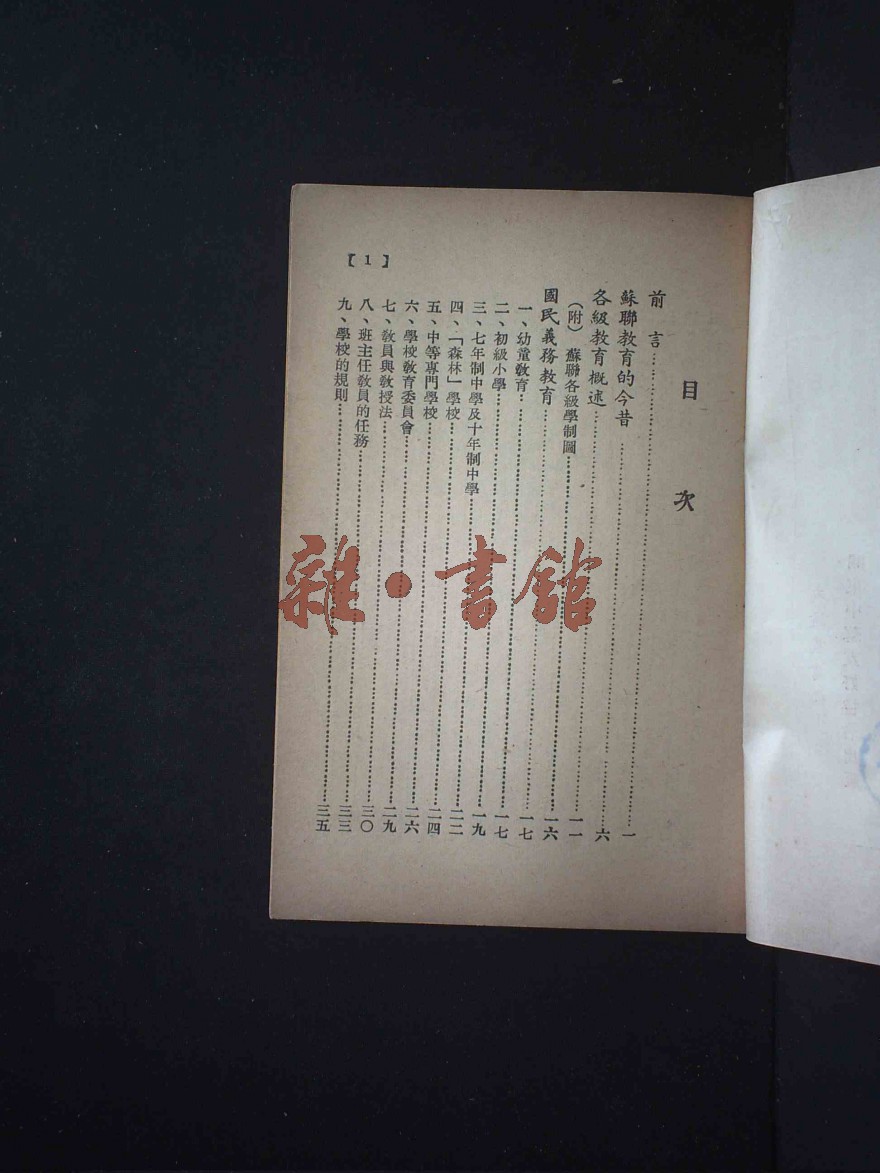 目次
前言……一
蘇聯教育的今昔……六
各級教育概述……一一
(附) 蘇聯各級學制圖……一六
國民義務教育……一七
一、幼童教育……一七
二、初級小學……一九
三、七年制中學及十年制中學……二二
四、「森林」學校……二四
五、中等專門學校……二六
六、學校教育委員會……二九
七、教員與教授法……三〇
八、班主任教員的任務……三三
九、學校的規則……三五
【1】
雜·書館